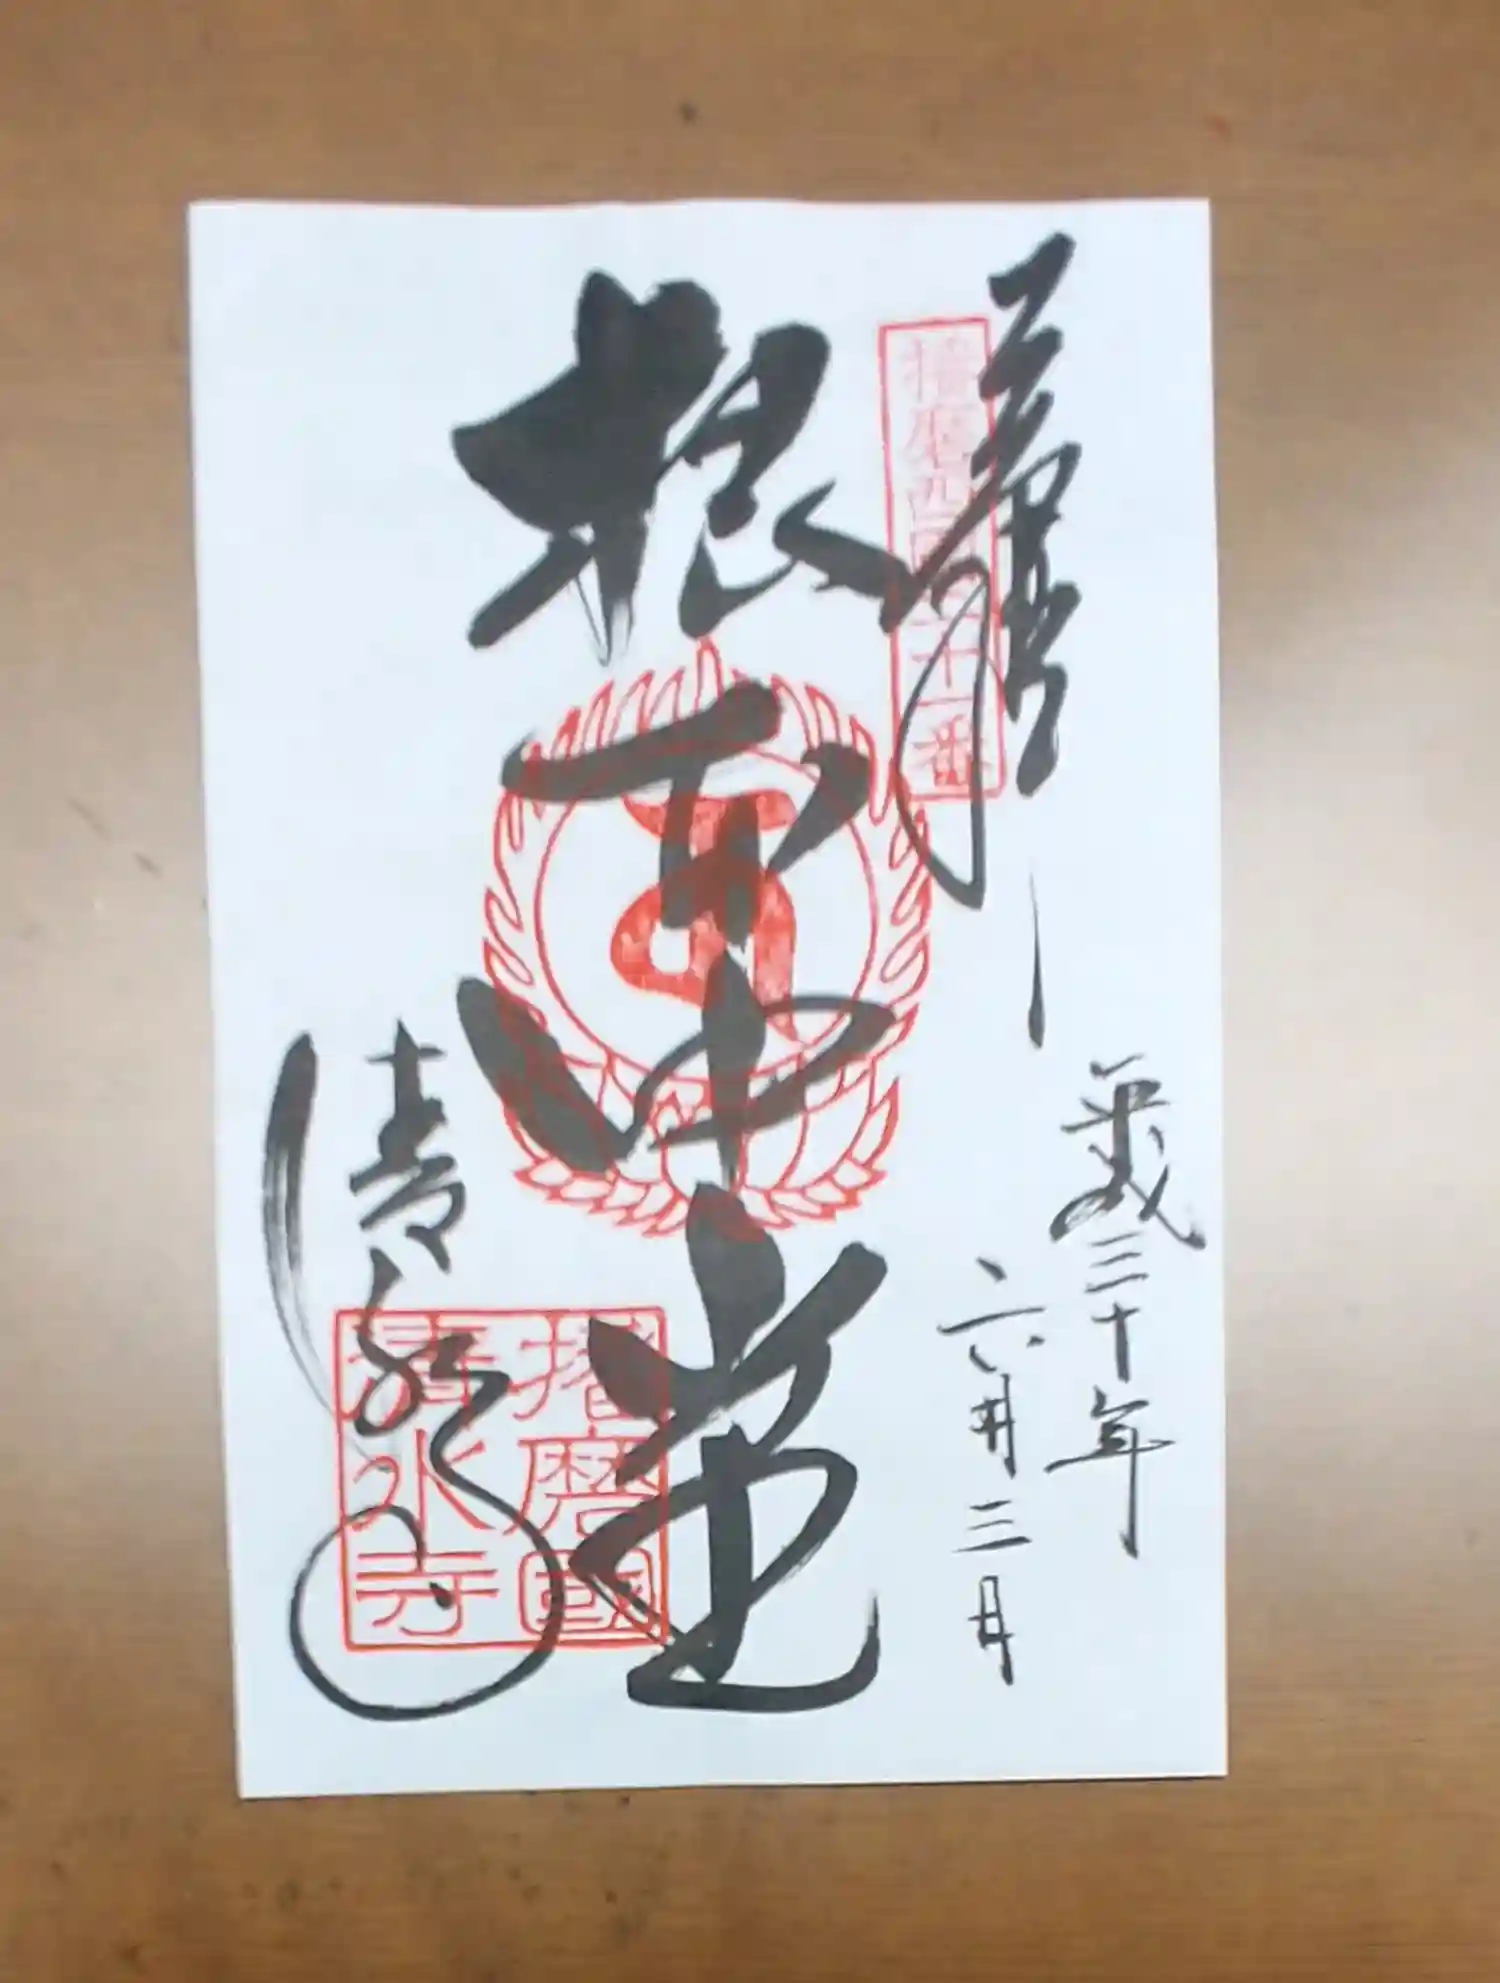 播磨西国十一番
平成三十年
六月三日
根本中堂
清水寺
播磨國
清水寺